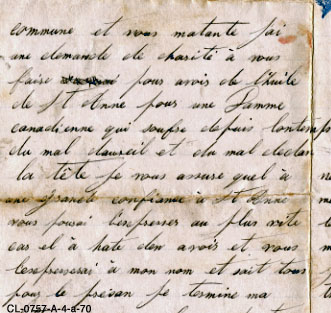 commune et vous matante jai
une demande de charité à vous
faire pour avoir de lhuile
de St Anne pour une Damme
canadienne qui soufre depuis lontemp
du mal daureil et du mal declar
la tête je vous assure quel à
une grande confiance à St Anne
vous pouvai lenspesser au plus vite
cas el à hate den avoir et vous
lespesserai à mon nom et sait tous
pour le présan je termine ma
CL-0757-A-4-a-70